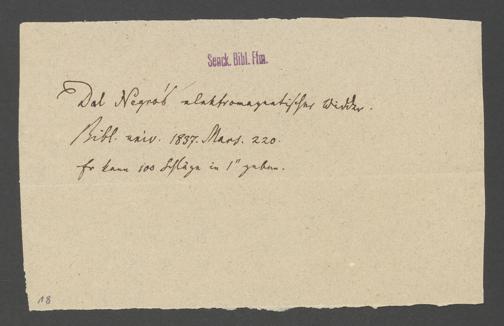 Senck. Bibl. Ffm.
Dal Negro's elektromagnetischer Widder.
Bibl. univ. 1837. Mars. 220.
Er kann 100 Schläge in 1" geben.
18